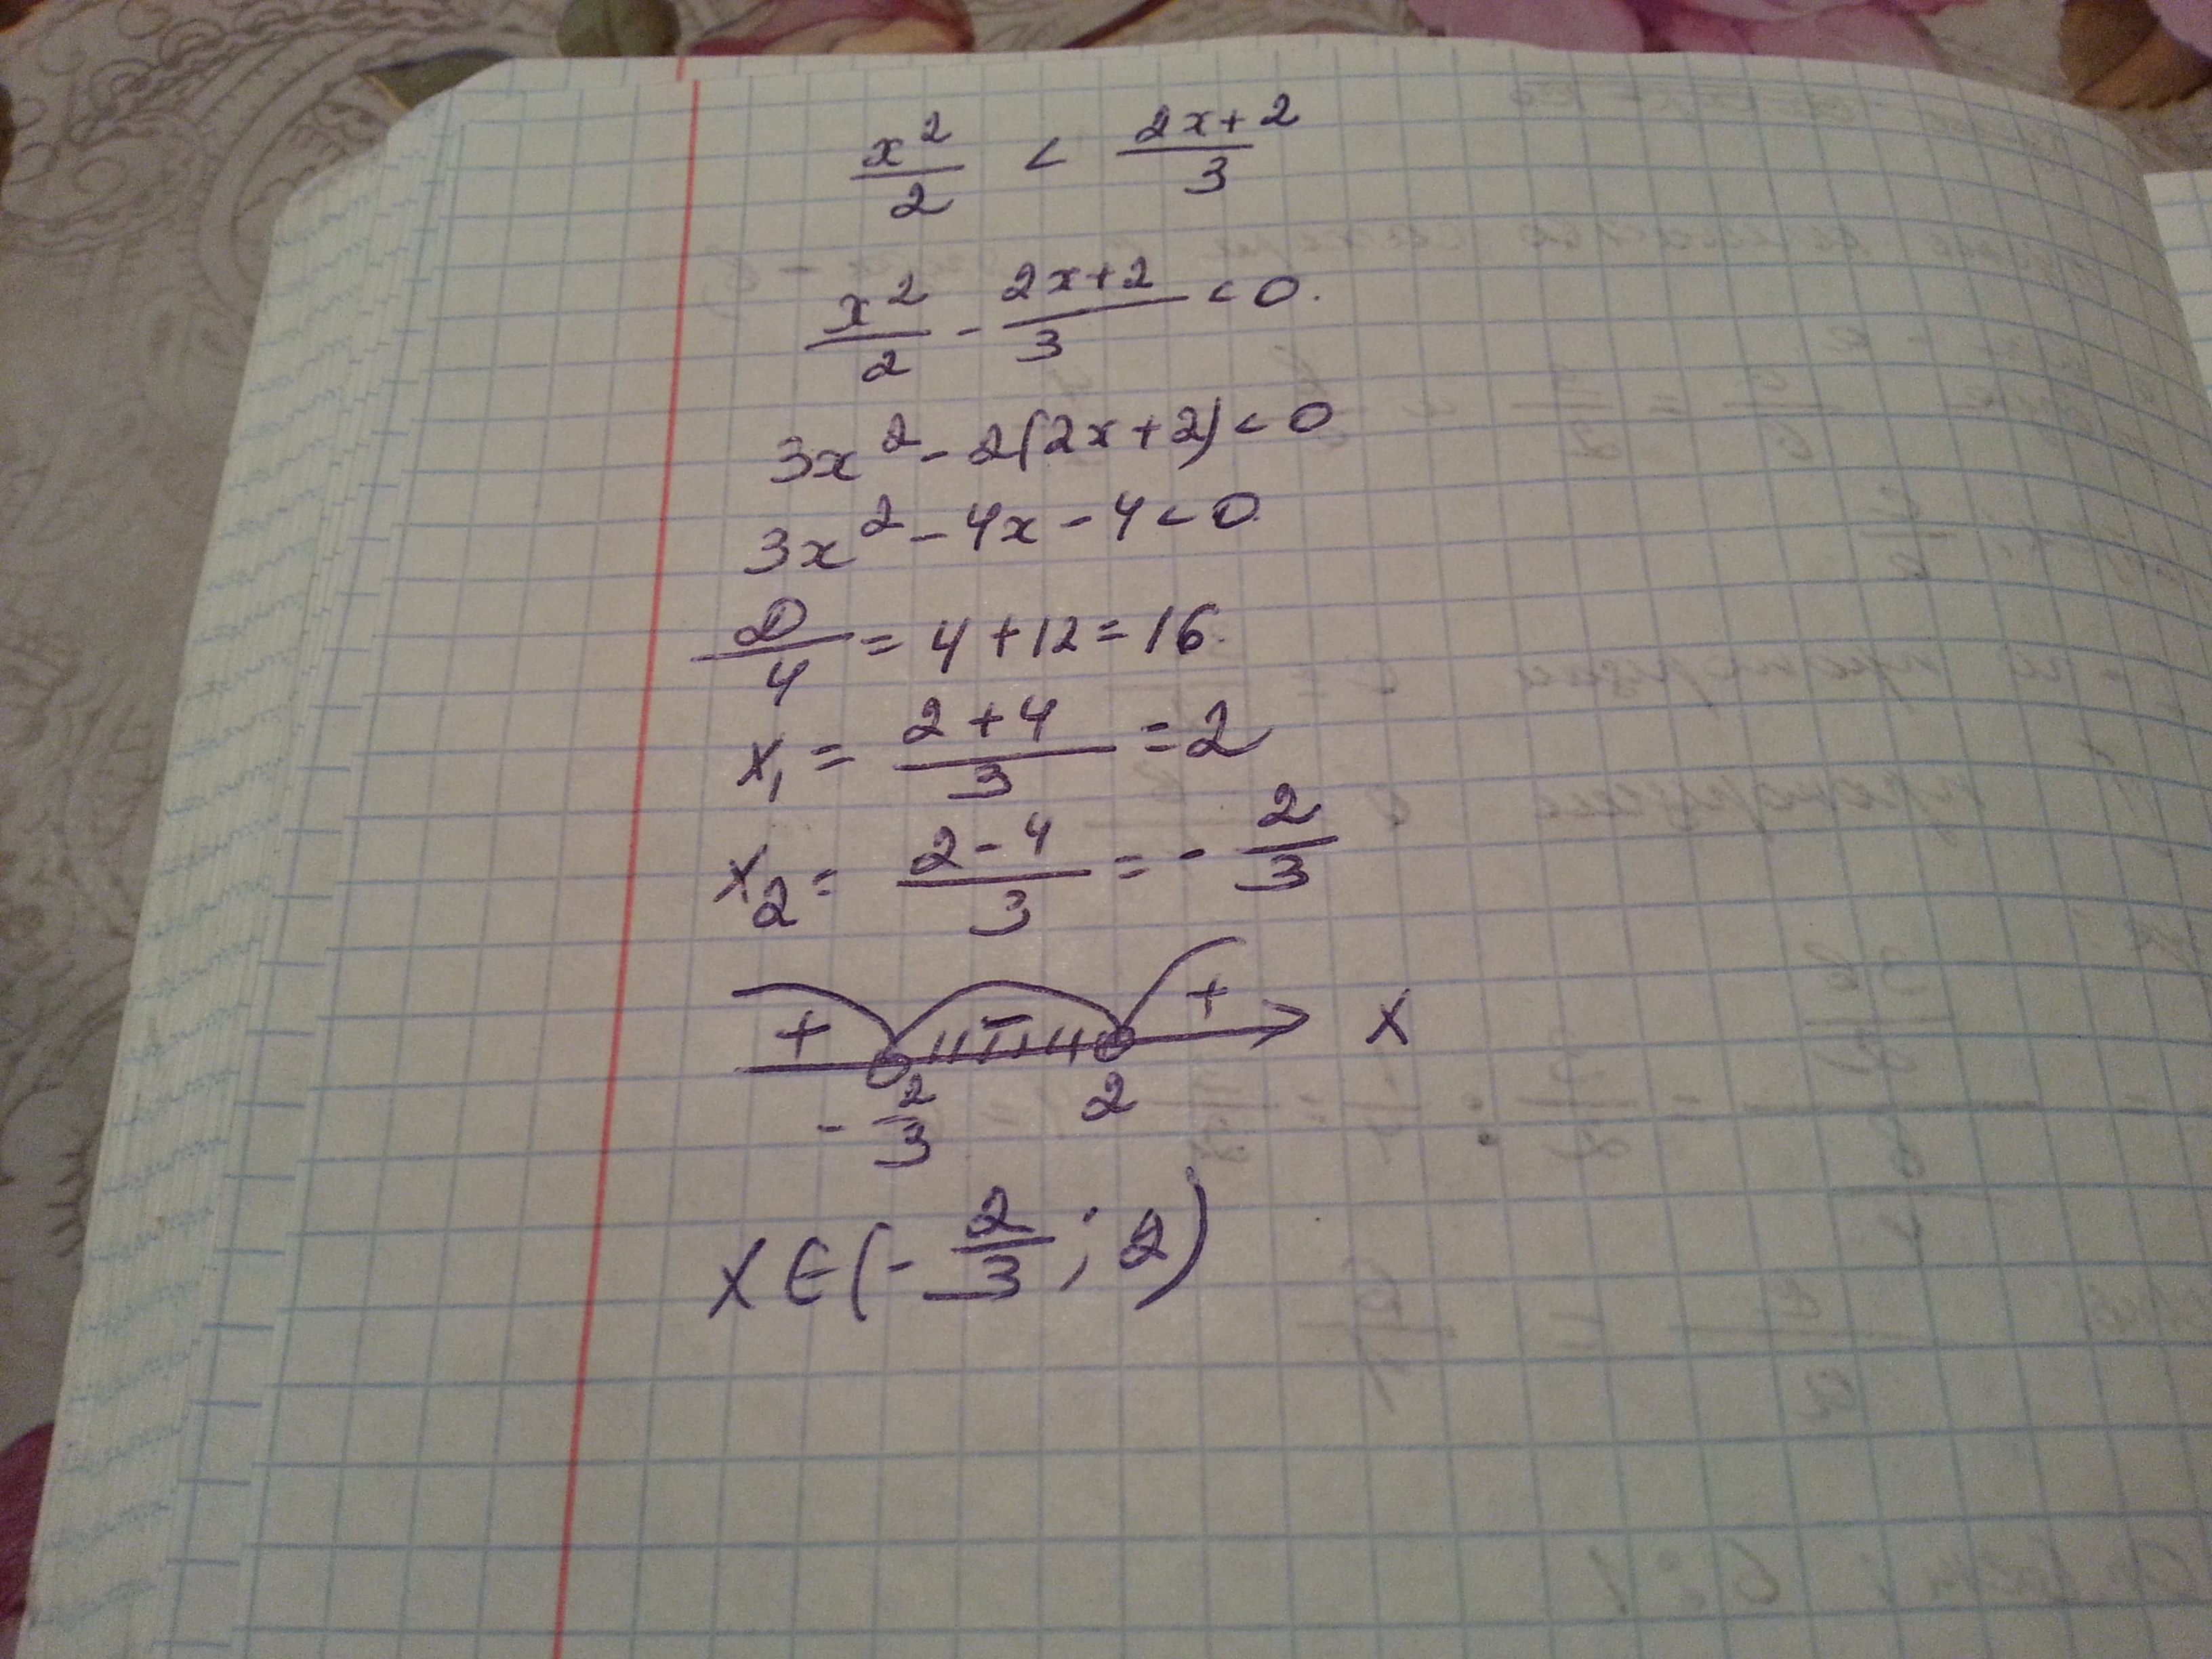 x²/2 < (2x+2)/3
x²/2 - (2x+2)/3 < 0.
3x² - 2(2x+2) < 0
3x² - 4x - 4 < 0
D/4 = 4 + 12 = 16.
x₁ = (2+4)/3 = 2
x₂ = (2-4)/3 = -2/3
+ - + x
-2/3 2
x ∈ (-2/3; 2)